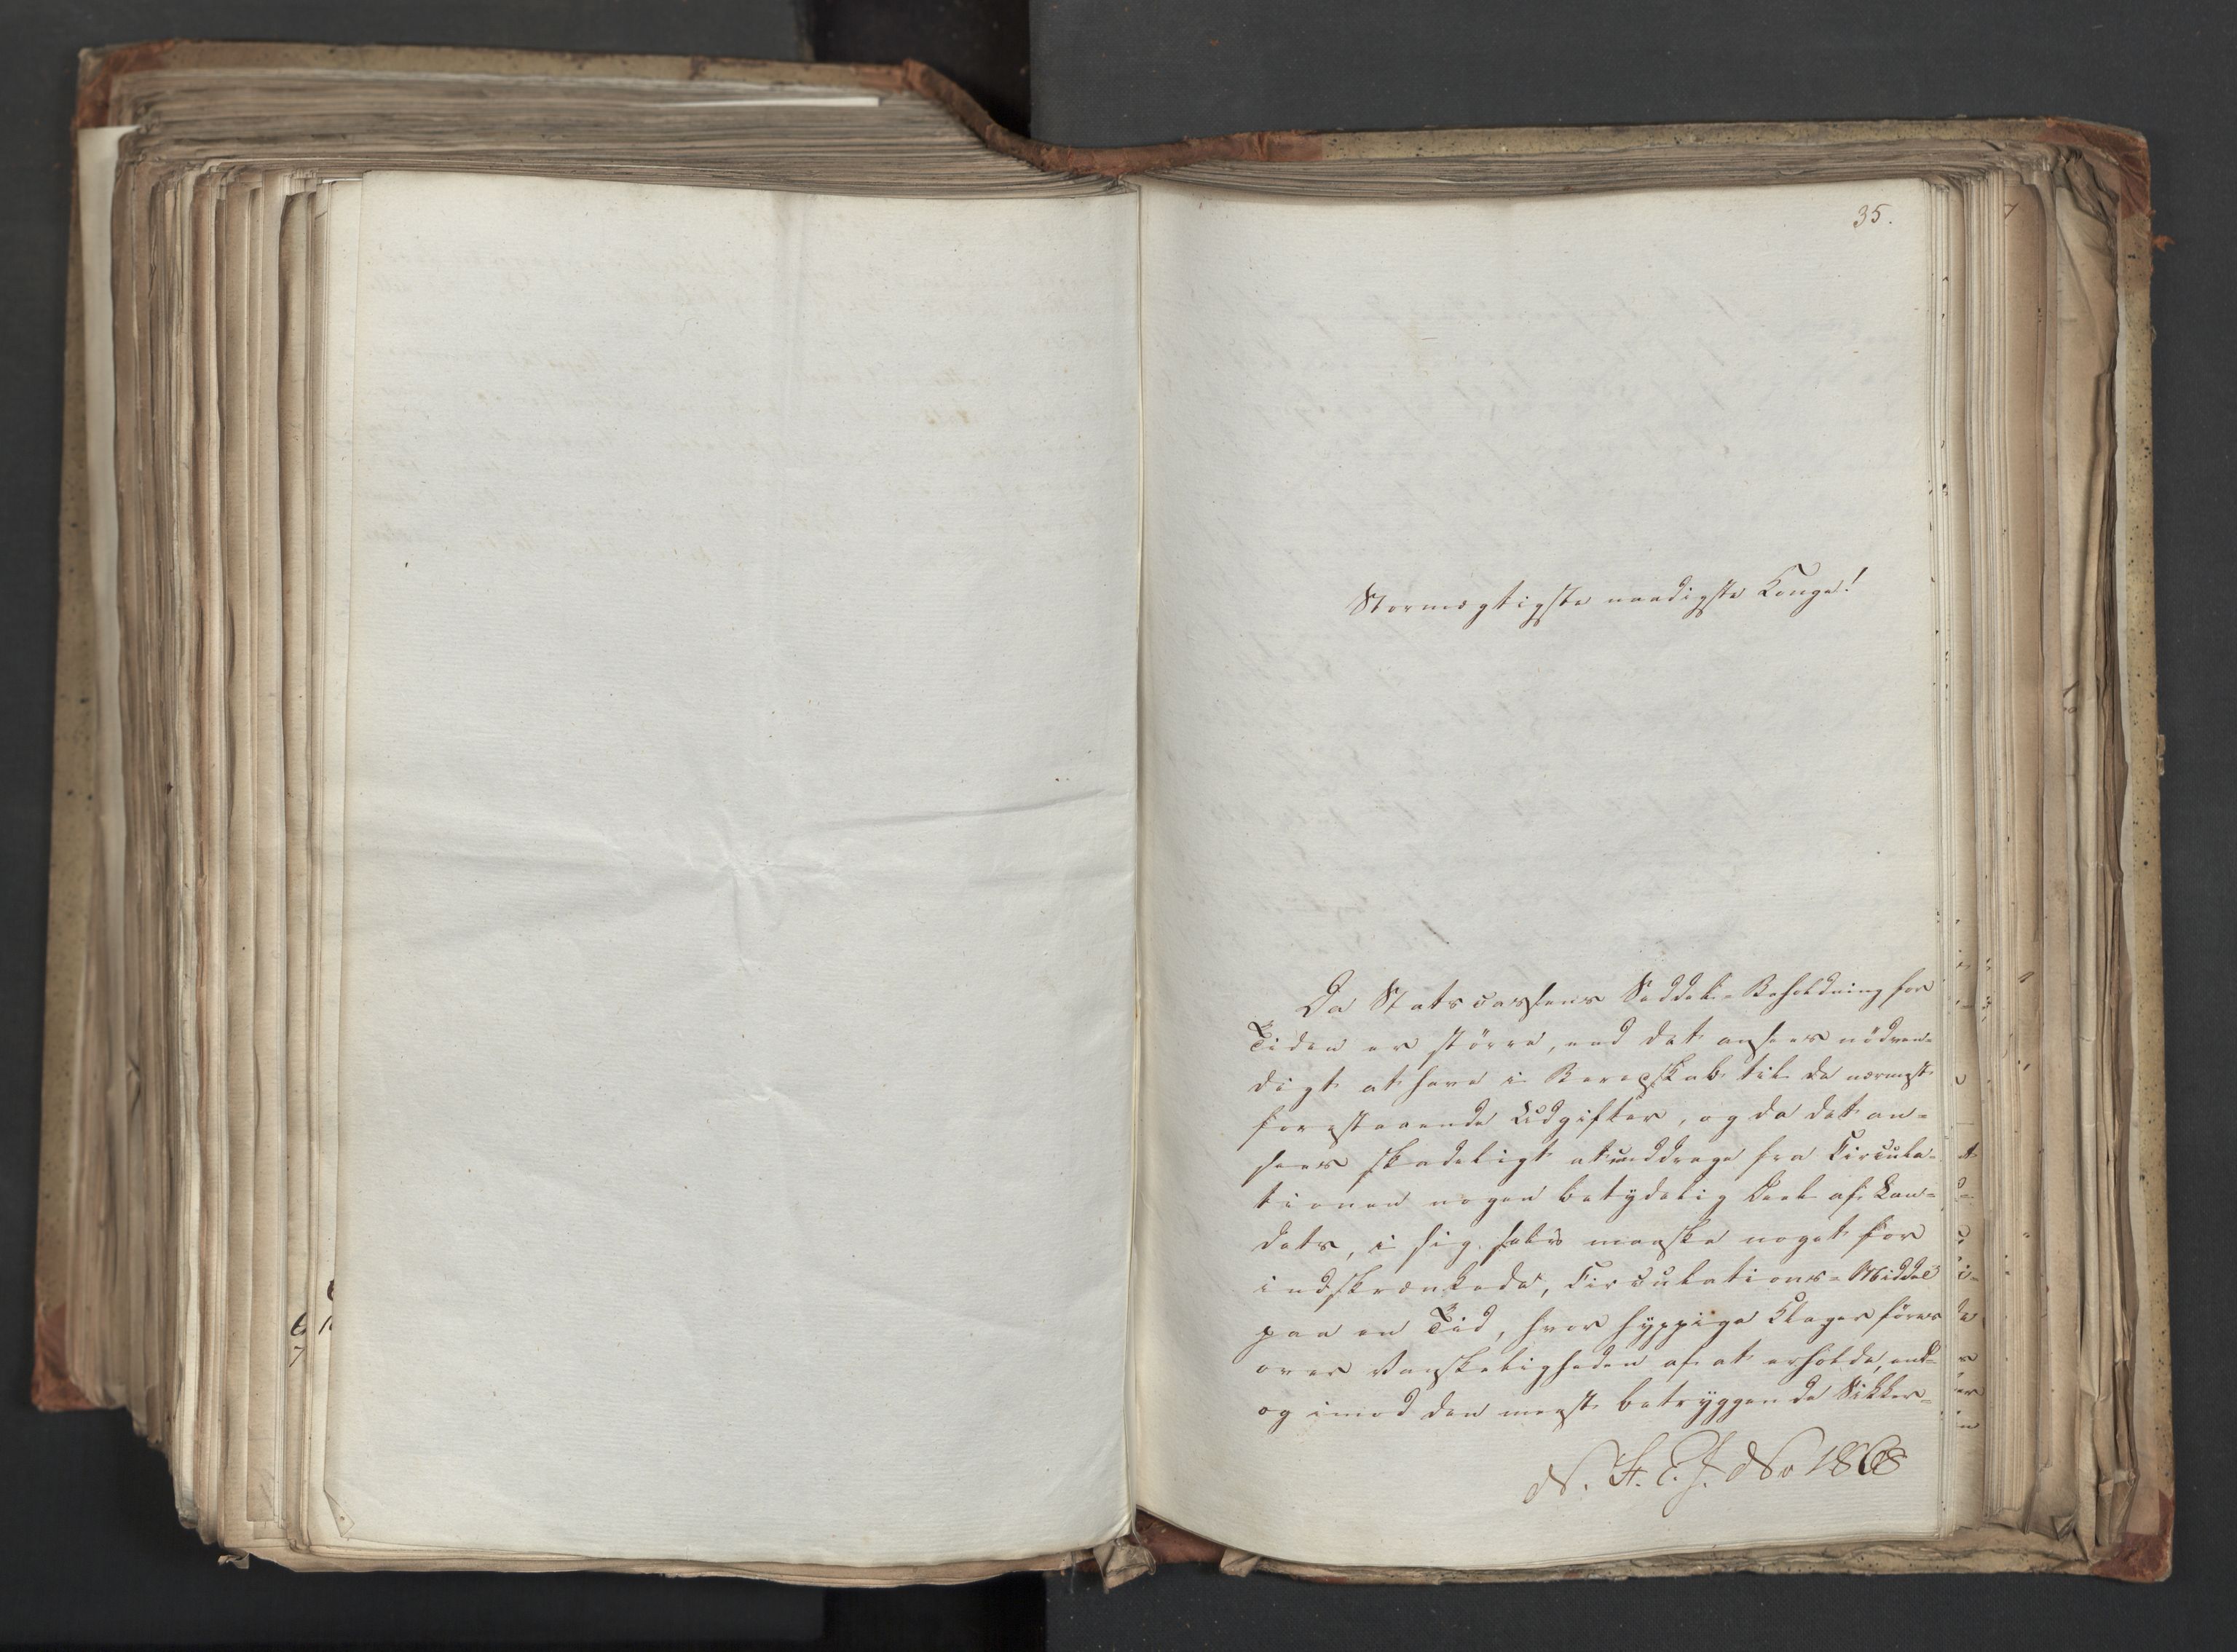 35.
Stormægtigste naadigste Konge!
Da Statscassens Seddel-Beholdning for
Tiden er större, end det ansees nödven-
digt at have i Beredskab til de nærmest
forestaaende Udgifter, og da det an-
sees skadeligt at unddrage fra Circula-
tionen nogen betydelig Deel af Lan-
dets, i sig selv maaske noget for
indskrænkede, Circulations-Middel
paa en Tid, hvor hyppige Klager föres
over Vanskeligheden af at erholde, end-
og imod den meest betryggende Sikker-
N. St. C. J. No 1868
6
7